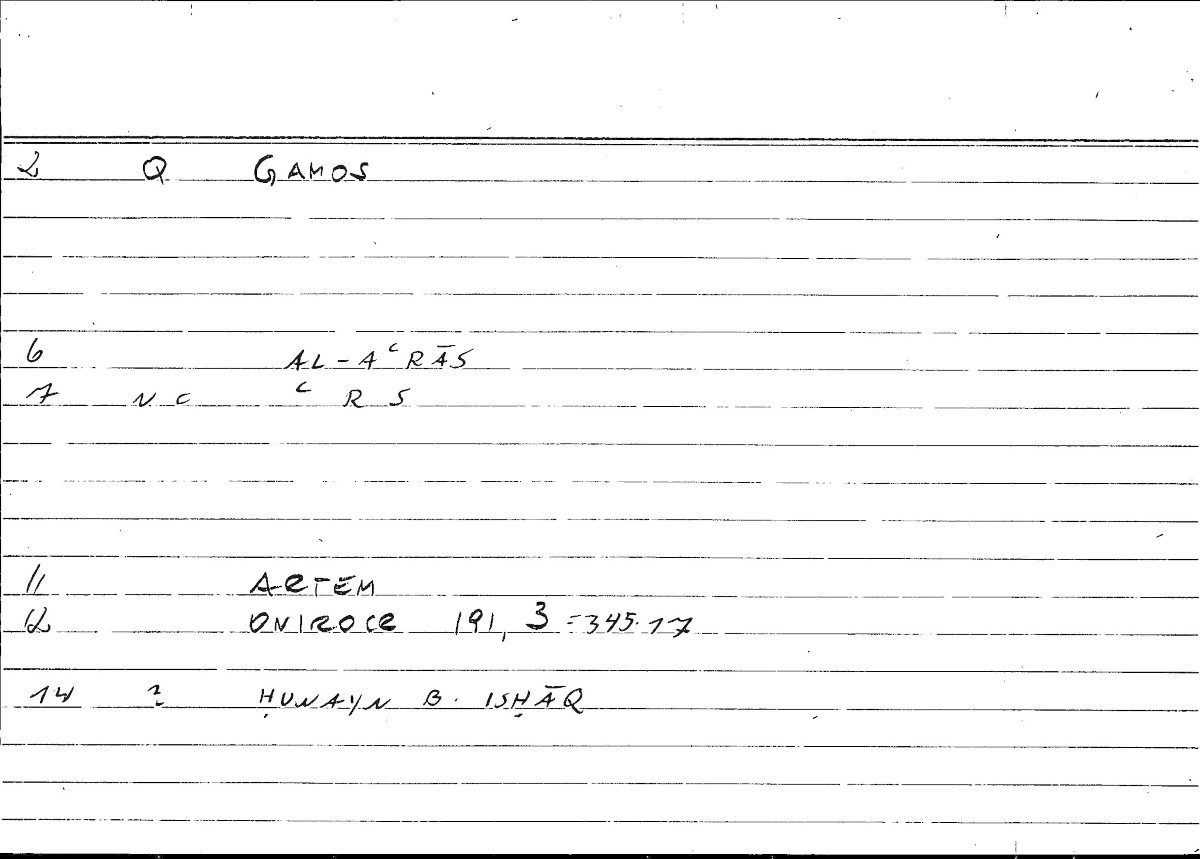 2 Q GAMOS
6 AL-AʿRĀS
7 NC ʿ R S
11 ARTEM
12 ONIROCR 191, 3 = 345.17
14 ? ḤUNAYN B. ISḤĀQ